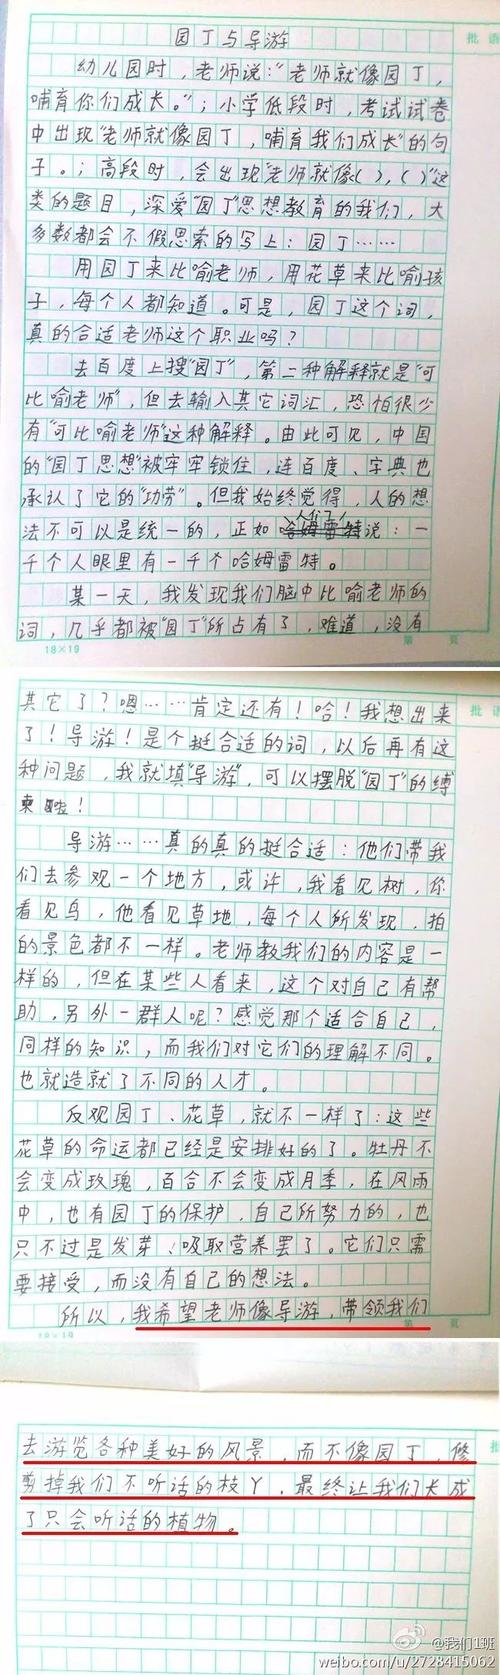 批语
园丁与导游
幼儿园时，老师说：“老师就像园丁，
哺育你们成长。”；小学低段时，考试试卷
中出现“老师就像园丁，哺育我们成长”的句
子。；高段时，会出现“老师就像( )，( )”这
类的题目，深爱“园丁”思想教育的我们，大
多数都会不假思索的写上：园丁……
用园丁来比喻老师，用花草来比喻孩
子，每个人都知道。可是，园丁这个词，
真的合适老师这个职业吗？
去百度上搜“园丁”，第二种解释就是“可
比喻老师”，但去输入其它词汇，恐怕很少
有“可比喻老师”这种解释。由此可见，中国
的“园丁思想”被牢牢锁住，连百度、字典也
承认了它的“功劳”。但我始终觉得，人的想
法不可以是统一的，正如人们说：一
千个人眼里有一千个哈姆雷特。
某一天，我发现我们脑中比喻老师的
词，几乎都被“园丁”所占有了，难道，没有
18×19
第 页
批语
其它了？嗯……肯定还有！哈！我想出来
了！导游！是个挺合适的词，以后再有这
种问题，我就填“导游”，可以摆脱“园丁”的缚
束啦！
导游……真的真的挺合适：他们带我
们去参观一个地方，或许，我看见树，你
看见鸟，他看见草地，每个人所发现，拍
的景色都不一样。老师教我们的内容是一
样的，但在某些人看来，这个对自己有帮
助，另外一群人呢？感觉那个适合自己，
同样的知识，而我们对它们的理解不同。
也就造就了不同的人才。
反观园丁、花草，就不一样了：这些
花草的命运都已经是安排好的了。牡丹不
会变成玫瑰，百合不会变成月季，在风雨
中，也有园丁的保护，自己所努力的，也
只不过是发芽、吸取营养罢了。它们只需
要接受，而没有自己的想法。
所以，我希望老师像导游，带领我们
18×19
第 页
去游览各种美好的风景，而不像园丁，修
剪掉我们不听话的枝丫，最终让我们长成
了只会听话的植物。
@我们1班
weibo.com/u/2728415062